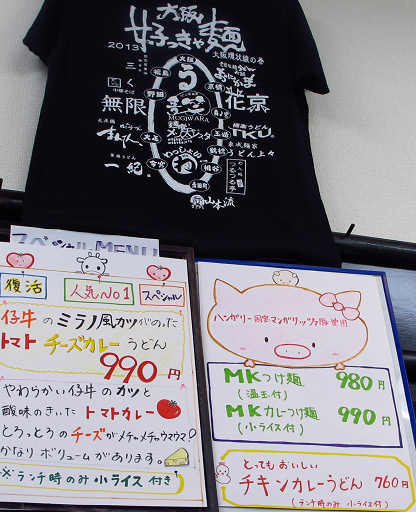 大阪
好っきゃ麺
2013
大阪環状線の巻
三く
大阪
福島
京橋
野田
無限
花京
MUGIWARA
大正
玉造
鶴橋
鶴橋うどん上々
一紀
今宮
桃谷
つるつる亭
寺田町
山本流
スペシャルMENU
復活
人気No1
スペシャル
仔牛のミラノ風カツがのった
トマトチーズカレーうどん
990円
やわらかい仔牛のカツと
酸味のきいたトマトカレー
とろっとろのチーズがメチャメチャウマウマ!
かなりボリュームがあります。
※ランチ時のみ小ライス付き
ハンガリー国宝マンガリッツァ豚使用
MKつけ麺 980円
(温玉付)
MKカレーつけ麺 990円
(小ライス付)
とってもおいしい
チキンカレーうどん 760円
(ランチ時のみ 小ライス付)